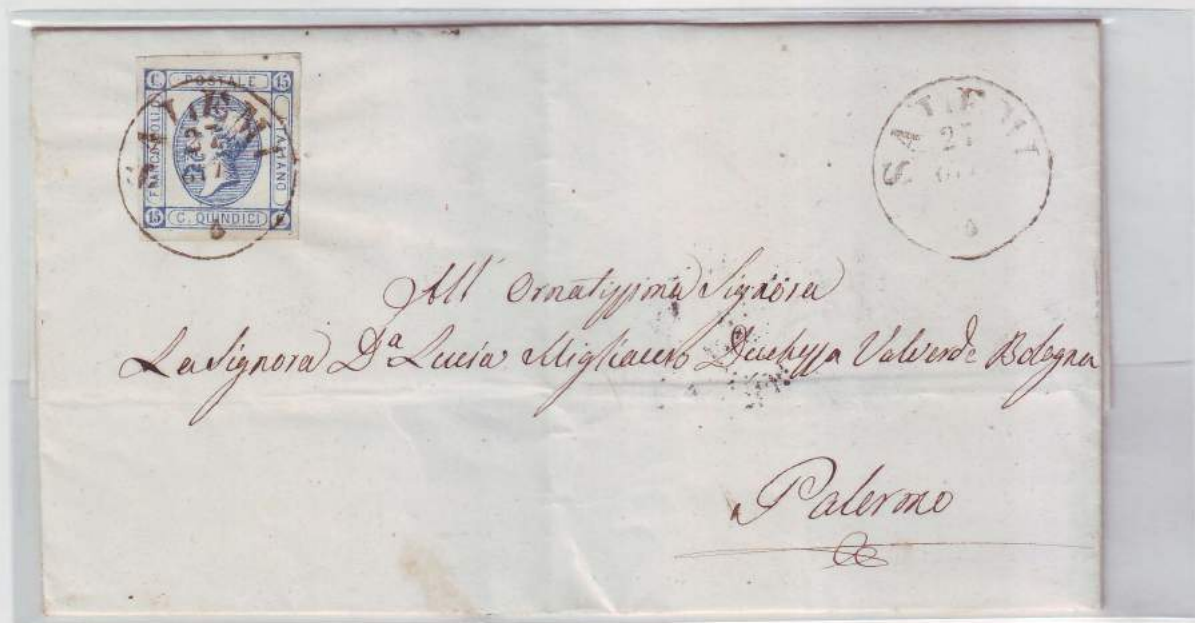 C. POSTALE 15
FRANCO BOLLO
ITALIANO
15 C. QUINDICI C
SALEMI
SALEMI
27
All' Ornatissima Signora
La Signora Da. Lucia Migliaccio Duchessa Valverde Bologna
Palermo